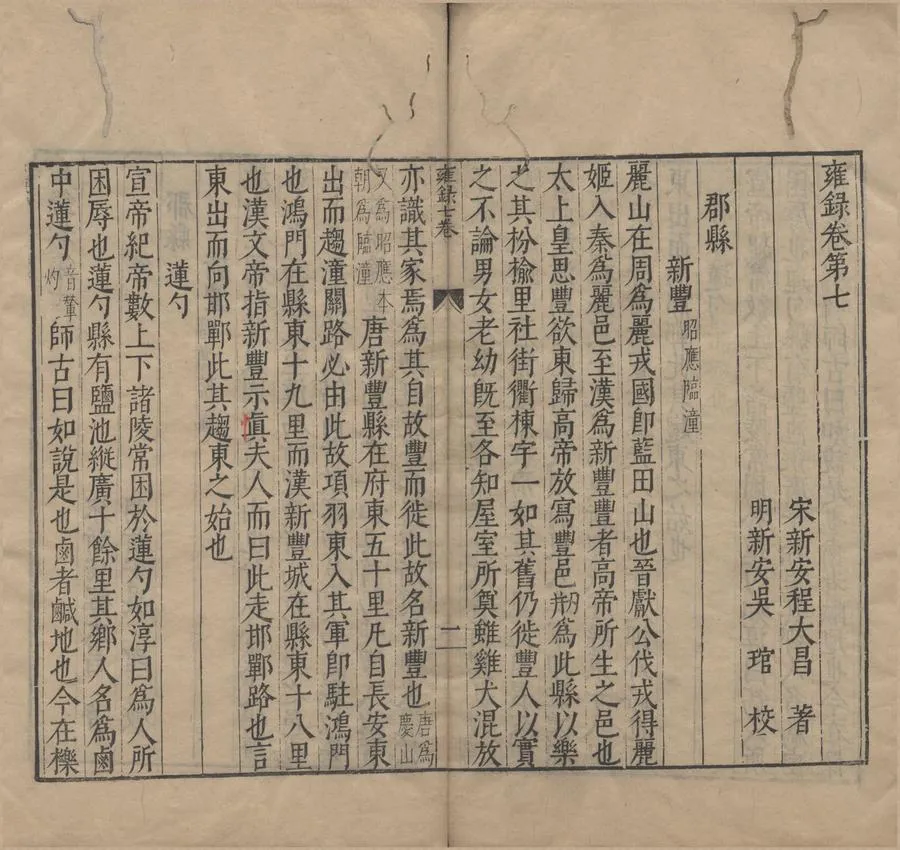 雍錄卷第七
宋新安程大昌 著
明新安吳 琯 校
郡縣
新豐 昭應臨潼
麗山在周為麗戎國卽藍田山也晉獻公伐戎得麗
姬入秦為麗邑至漢為新豐豐者高帝所生之邑也
太上皇思豐欲東歸高帝放寫豐邑剏為此縣以樂
之其枌榆里社街衢棟宇一如其舊仍徙豐人以實
之不論男女老幼旣至各知屋室所奠雞雞犬混放
雍錄七卷 一
亦識其家焉為其自故豐而徙此故名新豐也唐為慶山
又為昭應本朝為臨潼唐新豐縣在府東五十里凡自長安東
出而趨潼關路必由此故項羽東入其軍卽駐鴻門
也鴻門在縣東十九里而漢新豐城在縣東十八里
也漢文帝指新豐示慎夫人而曰此走邯鄲路也言
東出而向邯鄲此其趨東之始也
蓮勺
宣帝紀帝數上下諸陵常困於蓮勺如淳曰為人所
困辱也蓮勺縣有鹽池縱廣十餘里其鄉人名為鹵
中蓮勺音輦灼師古曰如說是也鹵者鹹地也今在櫟